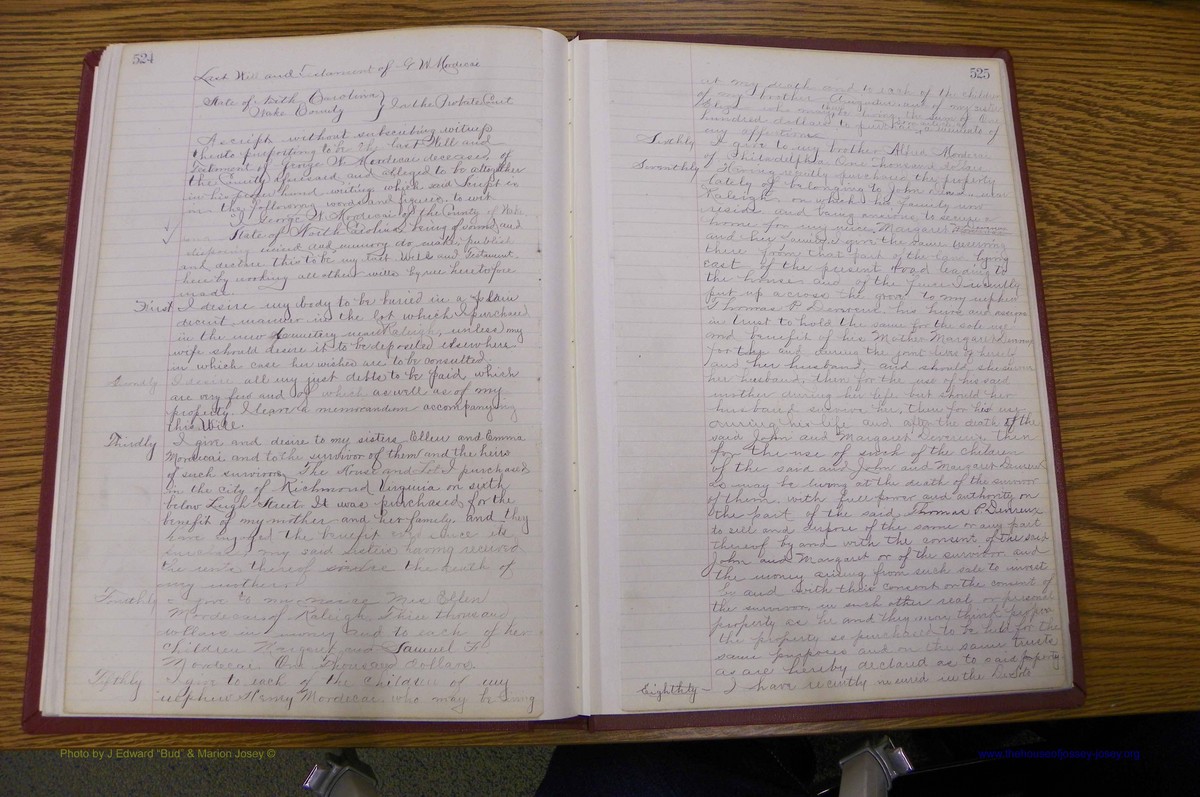 524
Last Will and Testament of G W Mordecai
State of North Carolina
Wake County } In the Probate Court
A script without subscribing witness
thereto purporting to be the last Will and
Testament of George W. Mordecai deceased, of
the County aforesaid and alleged to be altogether
in his proper hand writing which said Script is
in the following words and figures, to wit
I George W. Mordecai of the County of Wake
State of North Carolina being of sound and
disposing mind and memory do make publish
and declare this to be my last Will and Testament.
hereby revoking all other wills by me heretofore
made.
First I desire my body to be buried in a plain
decent manner in the lot which I purchased
in the new Cemetery near Raleigh, unless my
wife should desire it to be deposited elsewhere
in which case her wishes are to be consulted.
Secondly I desire all my just debts to be paid which
are very few and of which as well as of my
property I leave a memorandum accompanying
this Will.
Thirdly I give and desire to my sisters Ellen and Emma
Mordecai and to the survivor of them and the heirs
of such survivor, The House and Lot I purchased
in the city of Richmond Virginia on sixth
below Leigh Street. It was purchased for the
benefit of my mother and her family and they
have enjoyed the benefit ever since its
my said Sisters having received
the rents thereof since the death of
my mother.
Fourthly I give to my Mrs Ellen
Mordecai of Raleigh Three thousand
dollars in money and to each of her
Children Margaret and Samuel F.
Mordecai One Thousand dollars.
Fifthly I give to each of the Children of my
nephew Henry Mordecai who may be living
525
at my death and to each of the children
of my brother Augustus and of my sister
who may be living the sum of One
hundred dollars to purchase a memento of
my affections
Sixthly I give to my brother Alfred Mordecai
of Philadelphia One Thousand dollars
Seventhly Having recently purchased the property
lately belonging to John Devereux
Raleigh on which his family now
reside and being anxious to secure a
home for my niece Margaret Devereux
and her family I give the same reserving
there from that part of the land lying
east of the present road leading to
the house and of the fence I recently
put up across the grove to my nephew
Thomas P. Devereux, his heirs and assigns
in trust to hold the same for the sole use
and benefit of his Mother Margaret Devereux
for and during the joint lives of herself
and her husband, and should she survive
her husband, then for the use of his said
mother during her life but should her
husband survive her, then for his use
during his life and after the death of the
said John and Margaret Devereux then
for the use of such of the children
of the said John and Margaret Devereux
as may be living at the death of the survivor
of them, with full power and authority on
the part of the said Thomas P. Devereux
to sell and dispose of the same or any part
thereof by and with the consent of the said
John and Margaret or of the survivor and
the money arising from such sale to invest
by and with their consent or the consent of
the survivor in such other real or personal
property as he and they may think proper
the property so purchased to be held for the
same purposes and on the same trusts
as are hereby declared as to said property
Eighthly I have recently in the
Photo by J Edward "Bud" & Marion Josey ©
www.thehouseofjossey-josey.org